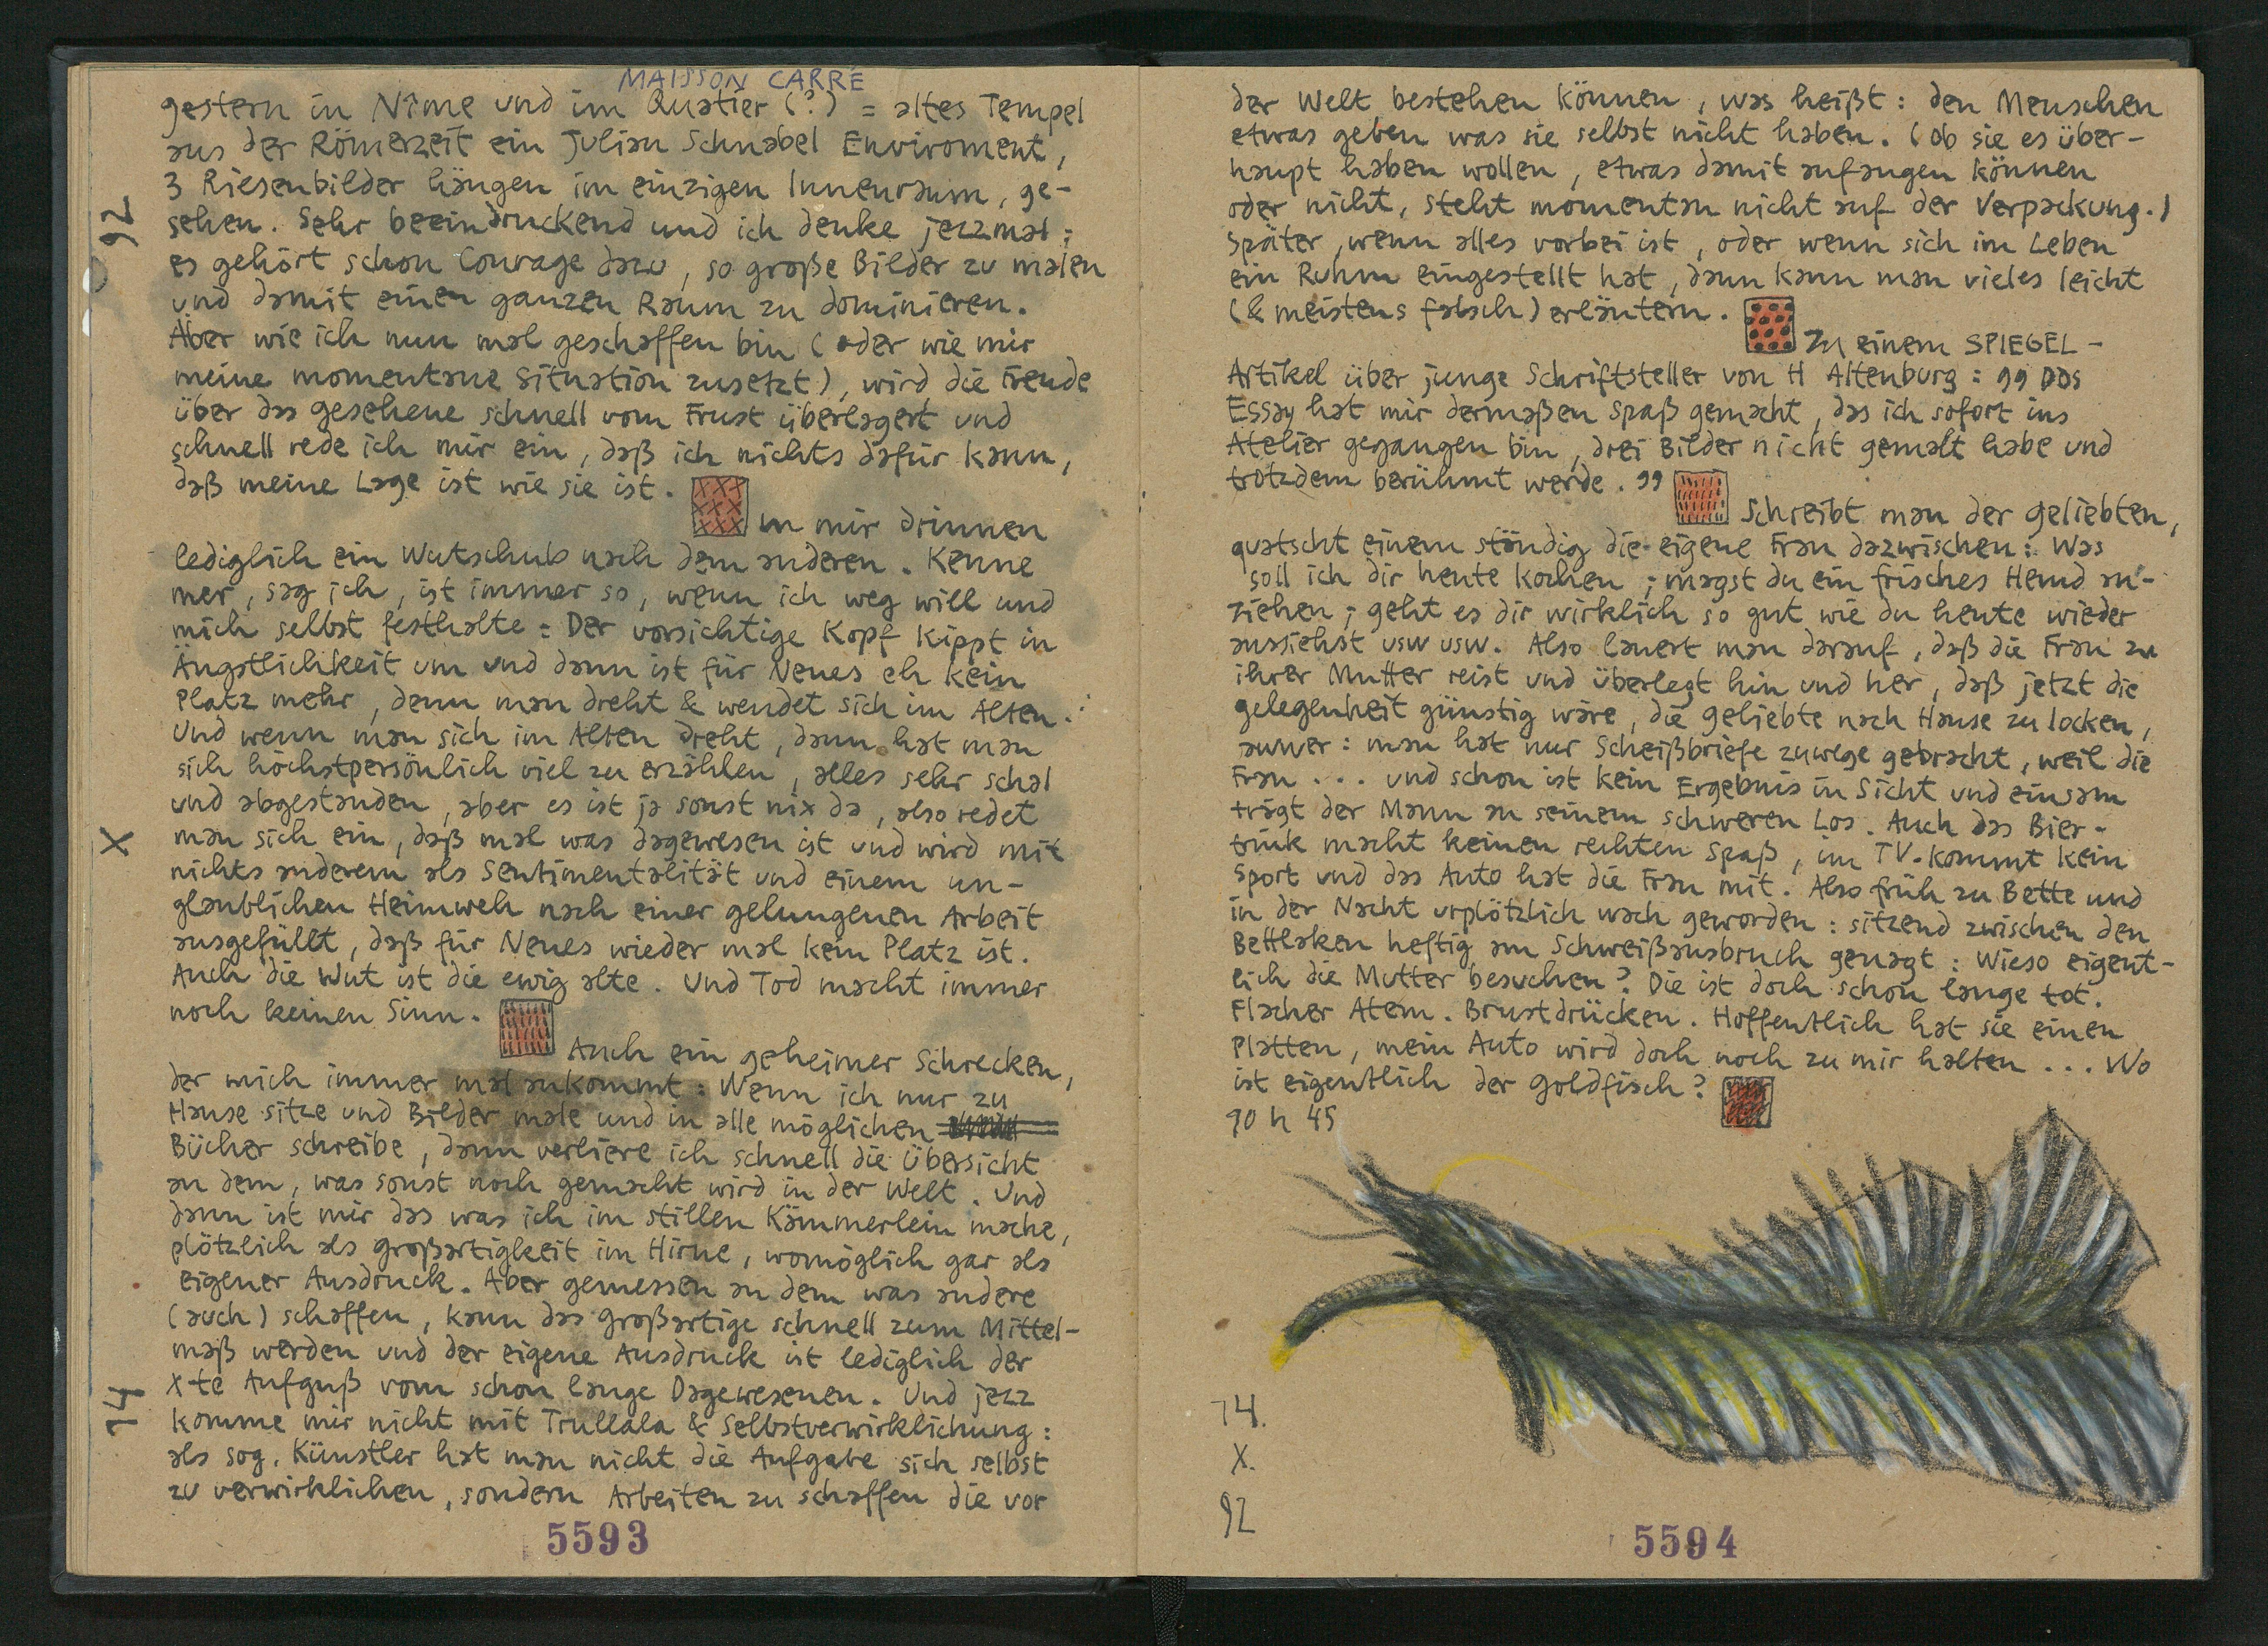 MAISSON CARRÉ
gestern in Nîme und im Quatier (?) = altes Tempel
aus der Römerzeit ein Julian Schnabel Enviroment,
3 Riesenbilder hängen im einzigen Innenraum, ge-
sehen. Sehr beeindruckend und ich denke jezzmal:
es gehört schon Courage dazu, so große Bilder zu malen
und damit einen ganzen Raum zu dominieren.
Aber wie ich nun mal geschaffen bin (oder wie mir
meine momentane Situation zusetzt), wird die Freude
über das gesehene schnell vom Frust überlagert und
schnell rede ich mir ein, daß ich nichts dafür kann,
daß meine Lage ist wie sie ist.
In mir drinnen
lediglich ein Wutschub nach dem anderen. Kenne
mer, sag ich, ist immer so, wenn ich weg will und
mich selbst festhalte: Der vorsichtige Kopf kippt in
Ängstlichkeit um und dann ist für Neues eh kein
Platz mehr, denn man dreht & wendet sich im Alten.
Und wenn man sich im Alten dreht, dann hat man
sich höchstpersönlich viel zu erzählen, alles sehr schal
und abgestanden, aber es ist ja sonst nix da, also redet
man sich ein, daß mal was dagewesen ist und wird mit
nichts anderem als Sentimentalität und einem un-
glaublichen Heimweh nach einer gelungenen Arbeit
ausgefüllt, daß für Neues wieder mal kein Platz ist.
Auch die Wut ist die ewig alte. Und Tod macht immer
noch keinen Sinn.
Auch ein geheimer Schrecken,
der mich immer mal ankommt: Wenn ich nur zu
Hause sitze und Bilder male und in alle möglichen
Bücher schreibe, dann verliere ich schnell die Übersicht
an dem, was sonst noch gemacht wird in der Welt. Und
dann ist mir das was ich im stillen Kämmerlein mache,
plötzlich als großartigkeit im Hirne, womöglich gar als
eigener Ausdruck. Aber gemessen an dem was andere
(auch) schaffen, kann das großartige schnell zum Mittel-
maß werden und der eigene Ausdruck ist lediglich der
Xte Aufguß vom schon lange Dagewesenen. Und jezz
komme mir nicht mit Trullala & Selbstverwirklichung:
als sog. Künstler hat man nicht die Aufgabe sich selbst
zu verwirklichen, sondern Arbeiten zu schaffen die vor
14
X
92
5593
der Welt bestehen können, was heißt: den Menschen
etwas geben was sie selbst nicht haben. (Ob sie es über-
haupt haben wollen, etwas damit anfangen können
oder nicht, steht momentan nicht auf der Verpackung.)
Später, wenn alles vorbei ist, oder wenn sich im Leben
ein Ruhm eingestellt hat, dann kann man vieles leicht
(& meistens falsch) erläutern.
Zu einem SPIEGEL-
Artikel über junge Schriftsteller von H Altenburg: 99 DOS
Essay hat mir dermaßen Spaß gemacht, das ich sofort ins
Atelier gegangen bin, drei Bilder nicht gemalt habe und
trotzdem berühmt werde. 99
Schreibt man der geliebten,
quatscht einem ständig die eigene Frau dazwischen: Was
soll ich dir heute kochen; magst du ein frisches Hemd an-
ziehen; geht es dir wirklich so gut wie du heute wieder
aussiehst usw usw. Also lauert man darauf, daß die Frau zu
ihrer Mutter reist und überlegt hin und her, daß jetzt die
gelegenheit günstig wäre, die geliebte nach Hause zu locken,
auwer: man hat nur Scheißbriefe zuwege gebracht, weil die
Frau ... und schon ist kein Ergebnis in Sicht und einsam
trägt der Mann an seinem schweren Los. Auch das Bier-
trink macht keinen rechten Spaß, im TV-kommt kein
Sport und das Auto hat die Frau mit. Also früh zu Bette und
in der Nacht urplötzlich wach geworden: sitzend zwischen den
Bettlaken heftig am Schweißausbruch genagt: Wieso eigent-
lich die Mutter besuchen? Die ist doch schon lange tot.
Flacher Atem. Brustdrücken. Hoffentlich hat sie einen
Platten, mein Auto wird doch noch zu mir halten ... Wo
ist eigentlich der Goldfisch?
10 h 45
14.
X.
92
5594